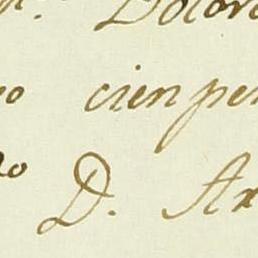 Dolor
cien pe
D. Ar